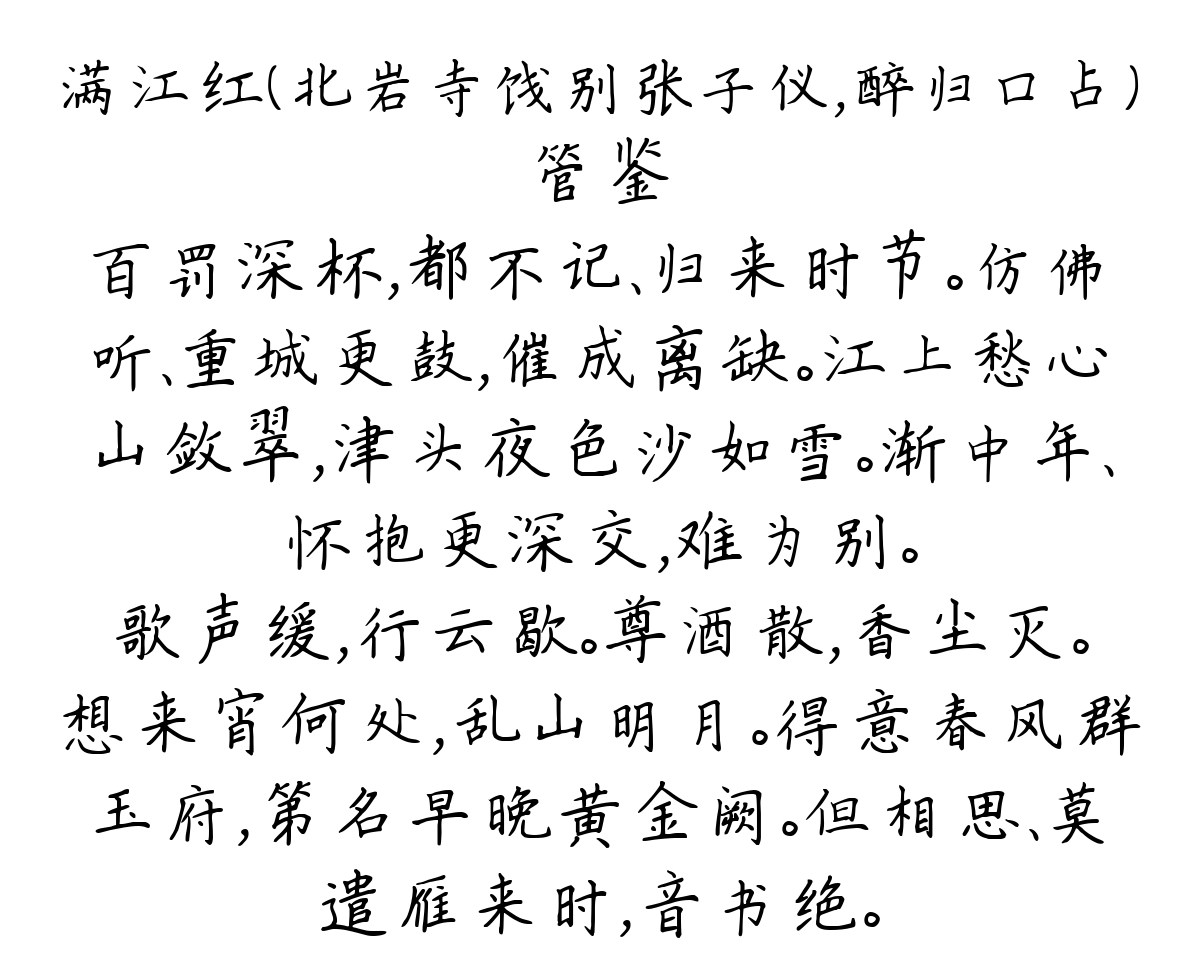 满江红(北岩寺饯别张子仪,醉归口占)
管鉴
百罚深杯,都不记、归来时节。仿佛
听、重城更鼓,催成离缺。江上愁心
山敛翠,津头夜色沙如雪。渐中年、
怀抱更深交,难为别。
歌声缓,行云歇。尊酒散,香尘灭。
想来宵何处,乱山明月。得意春风群
玉府,第名早晚黄金阙。但相思、莫
遣雁来时,音书绝。